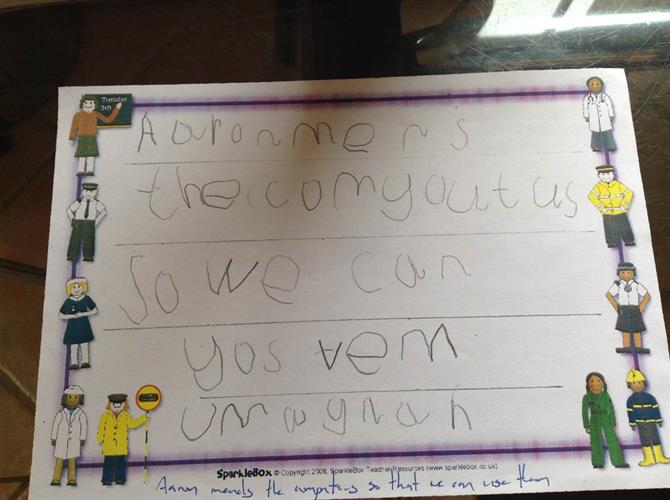 Tuesday
5th
Aaron mens
the comyoutus
So we can
yos vem
umaynah
SparkleBox © Copyright 2008, SparkleBox Teacher Resources (www.sparklebox.co.uk)
Aaron mends the computers so that we can use them